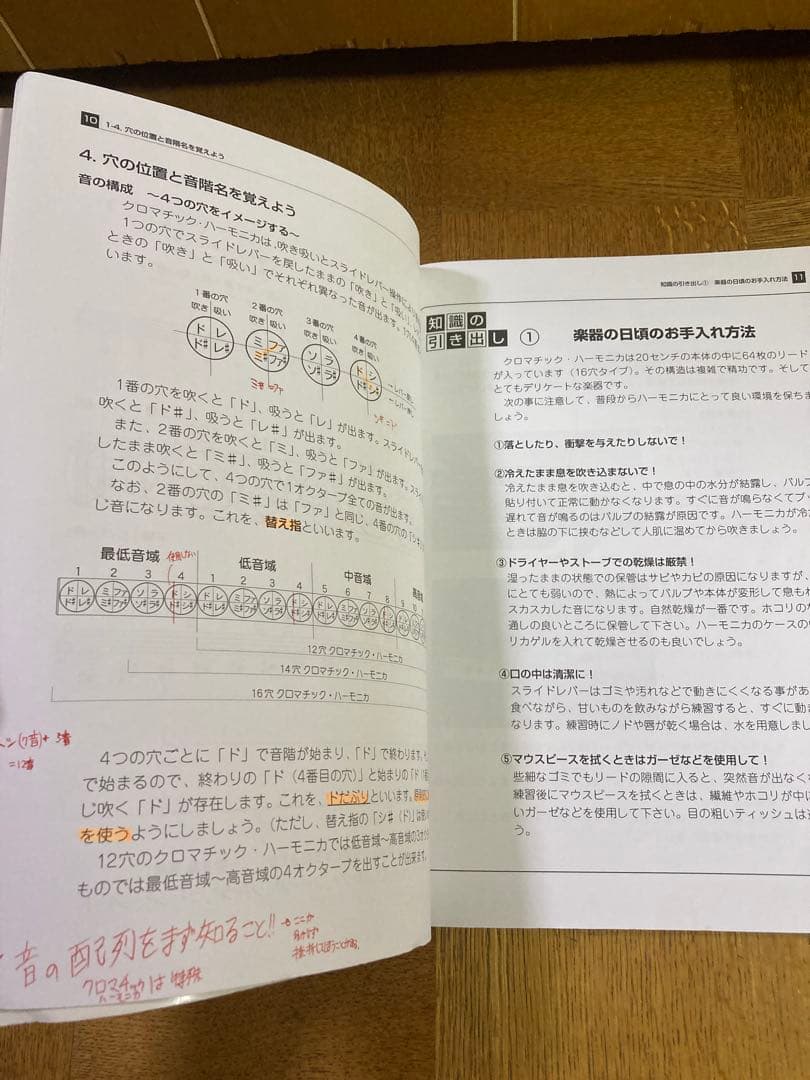 10 1-4. 穴の位置と音階名を覚えよう
4. 穴の位置と音階名を覚えよう
音の構成 ~4つの穴をイメージする~
クロマチック・ハーモニカは、吹き吸いとスライドレバー操作により
1つの穴でスライドレバーを戻したままの「吹き」と「吸い」、
ときの「吹き」と「吸い」でそれぞれ異なった音が出ます。
います。
1番の穴 2番の穴 3番の穴 4番の穴
吹き 吸い 吹き 吸い 吹き 吸い 吹き 吸い
ド レ ミ ファ ソ ラ ド シ
ド♯ レ♯ ミ♯ ファ♯ ソ♯ ラ♯ ド♯ シ♯
ミ♯=ファ
1番の穴を吹くと「ド」、吸うと「レ」が出ます。スライドレバー
吹くと「ド♯」、吸うと「レ♯」が出ます。
また、2番の穴を吹くと「ミ」、吸うと「ファ」が出ます。スライ
したまま吹くと「ミ♯」、吸うと「ファ♯」が出ます。
このようにして、4つの穴で1オクターブ全ての音が出ます。
なお、2番の穴の「ミ♯」は「ファ」と同じ、4番の穴の「シ♯
じ音になります。これを、替え指といいます。
最低音域 低音域 中音域
1 2 3 4 1 2 3 4 5 6 7 8 9 10
ド レ ミ ファ ソ ラ ド シ ド レ ミ ファ ソ ラ ド シ ド レ ミ ファ ソ ラ ド シ
ド♯ レ♯ ミ♯ ファ♯ ソ♯ ラ♯ ド♯ シ♯ ド♯ レ♯ ミ♯ ファ♯ ソ♯ ラ♯ ド♯ シ♯
12穴 クロマチック・ハーモニカ
14穴 クロマチック・ハーモニカ
16穴 クロマチック・ハーモニカ
=12音
4つの穴ごとに「ド」で音階が始まり、「ド」で終わります。
で始まるので、終わりの「ド(4番目の穴)」と始まりの「ド
じ吹く「ド」が存在します。これを、ドだぶりといいます。
を使うようにしましょう。(ただし、替え指の「シ♯(ド)」は
12穴のクロマチック・ハーモニカでは低音域~高音域の3オク
ものでは最低音域~高音域の4オクターブを出すことが出来ます。
音の配列をまず知ること!!
クロマチックは特殊
ハーモニカ
知識の引き出し① 楽器の日頃のお手入れ方法 11
知識の
引き出し
① 楽器の日頃のお手入れ方法
クロマチック・ハーモニカは20センチの本体の中に64枚のリード
が入っています(16穴タイプ)。その構造は複雑で精功です。そして
とてもデリケートな楽器です。
次の事に注意して、普段からハーモニカにとって良い環境を保ちま
しょう。
①落としたり、衝撃を与えたりしないで!
②冷えたまま息を吹き込まないで!
冷えたまま息を吹き込むと、中で息の中の水分が結露し、バルブ
貼り付いて正常に動かなくなります。すぐに音が鳴らなくてブッ
遅れて音が鳴るのはバルブの結露が原因です。ハーモニカが冷た
ときは脇の下に挟むなどして人肌に温めてから吹きましょう。
③ドライヤーやストーブでの乾燥は厳禁!
湿ったままの状態での保管はサビやカビの原因になりますが、
にとても弱いので、熱によってバルブや本体が変形して息もれ
スカスカした音になります。自然乾燥が一番です。ホコリの
通しの良いところに保管して下さい。ハーモニカのケースの中
リカゲルを入れて乾燥させるのも良いでしょう。
④口の中は清潔に!
スライドレバーはゴミや汚れなどで動きにくくなる事があ
食べながら、甘いものを飲みながら練習すると、すぐに動
なります。練習時にノドや唇が乾く場合は、水を用意しまし
⑤マウスピースを拭くときはガーゼなどを使用して!
些細なゴミでもリードの隙間に入ると、突然音が出なくな
練習後にマウスピースを拭くときは、繊維やホコリが中に
いガーゼなどを使用して下さい。目の粗いティッシュは
う。